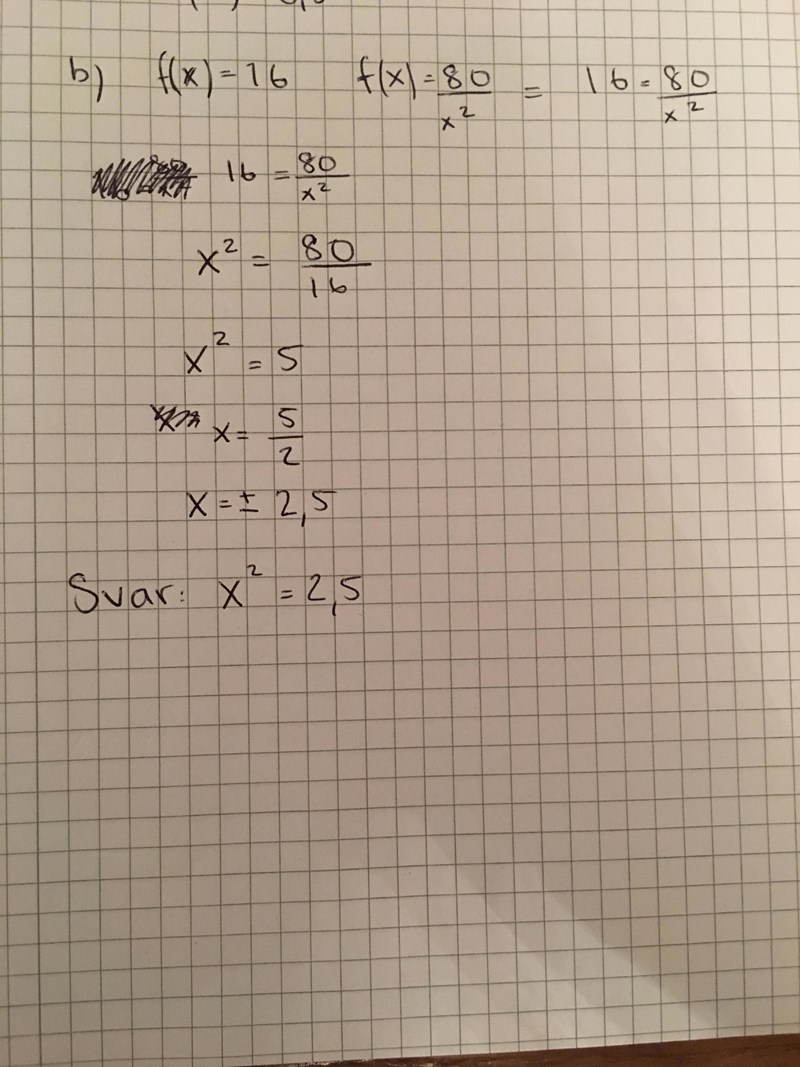 b) f(x) = 16 f(x) = 80/x² = 16 = 80/x²
16 = 80/x²
x² = 80/16
x² = 5
x = 5/2
x = ± 2,5
Svar: x² = 2,5